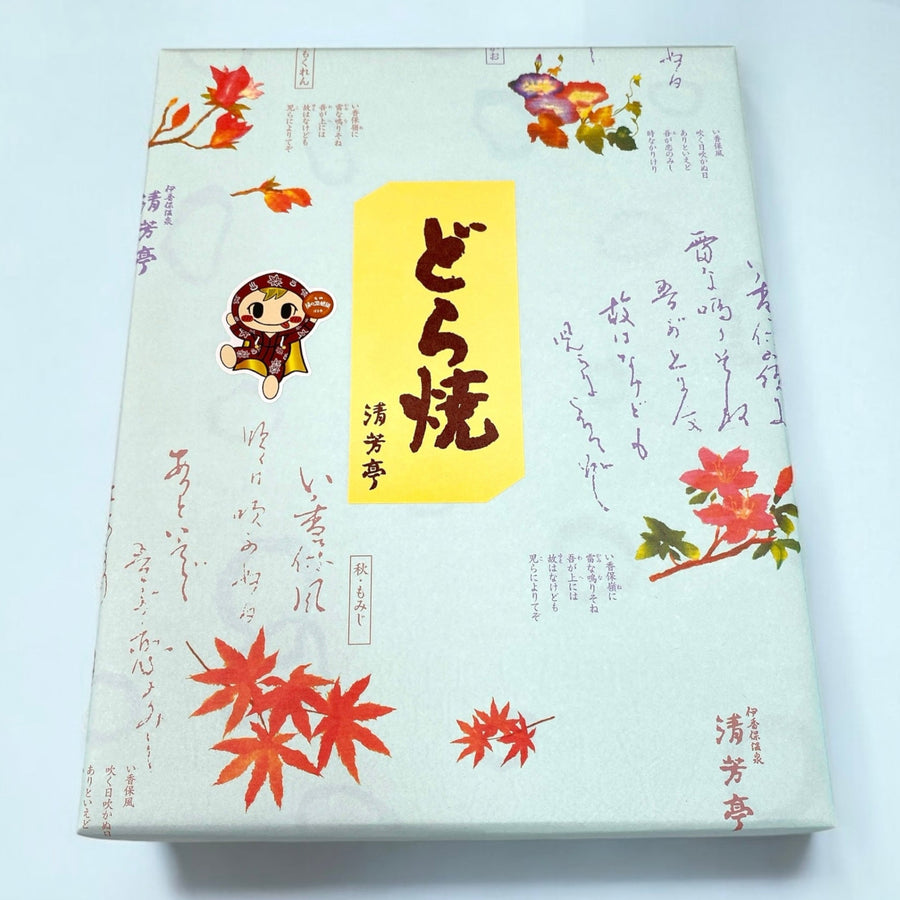 もくれん
い香保嶺に
雷な鳴りそね
吾が上には
故はなけども
児らによりてぞ
い香保風
吹く日吹かぬ日
ありといえど
吾が恋のみし
時なかりけり
伊香保温泉
清芳亭
どら焼
清芳亭
雷な鳴りそね
吾が上には
故はなけども
児らによりてぞ
い香保風
吹く日吹かぬ日
ありといえど
秋・もみじ
い香保嶺に
雷な鳴りそね
吾が上には
故はなけども
児らによりてぞ
伊香保温泉
清芳亭
い香保風
吹く日吹かぬ日
ありといえど